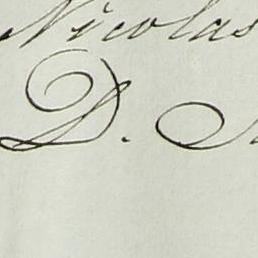 Nicolas
D.